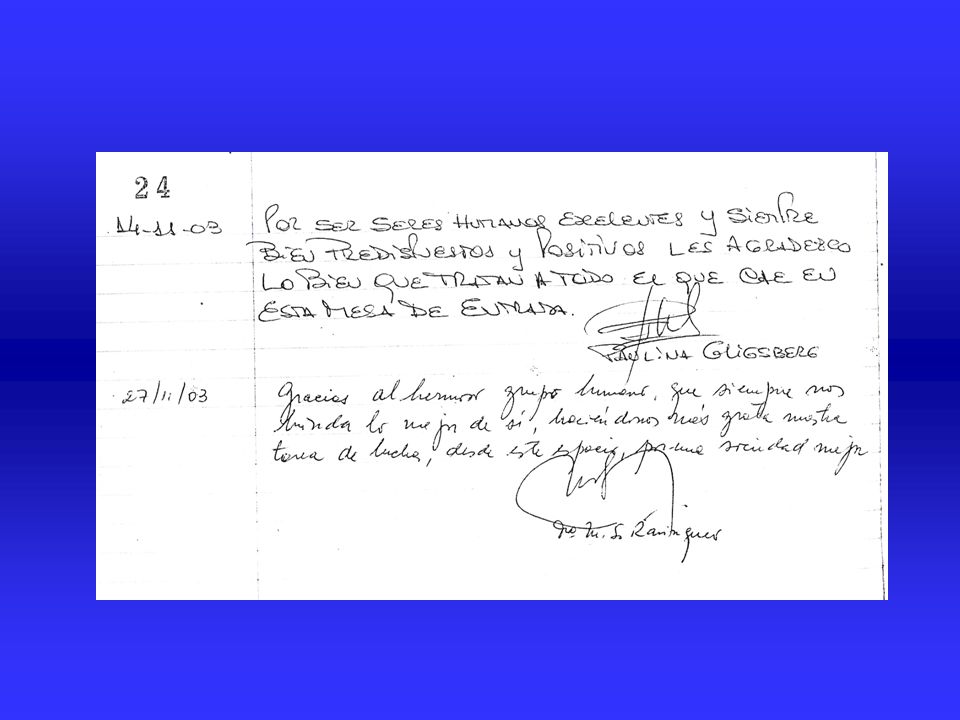 24
14-11-03
POR SER SERES HUMANOS EXELENTES y SIEMPRE
BIEN PREDISPUESTOS y POSITIVOS LES AGRADESCO
LO BIEN QUE TRATAN A TODO EL QUE CAE EN
ESTA MESA DE ENTRADA.
PAULINA GLIGSBERG
27/11/03
Gracias al hermoso grupo humano, que siempre nos
brinda lo mejor de sí, haciéndonos más grata nuestra
tarea de lucha, desde este espacio, por una sociedad mejor
M. S.